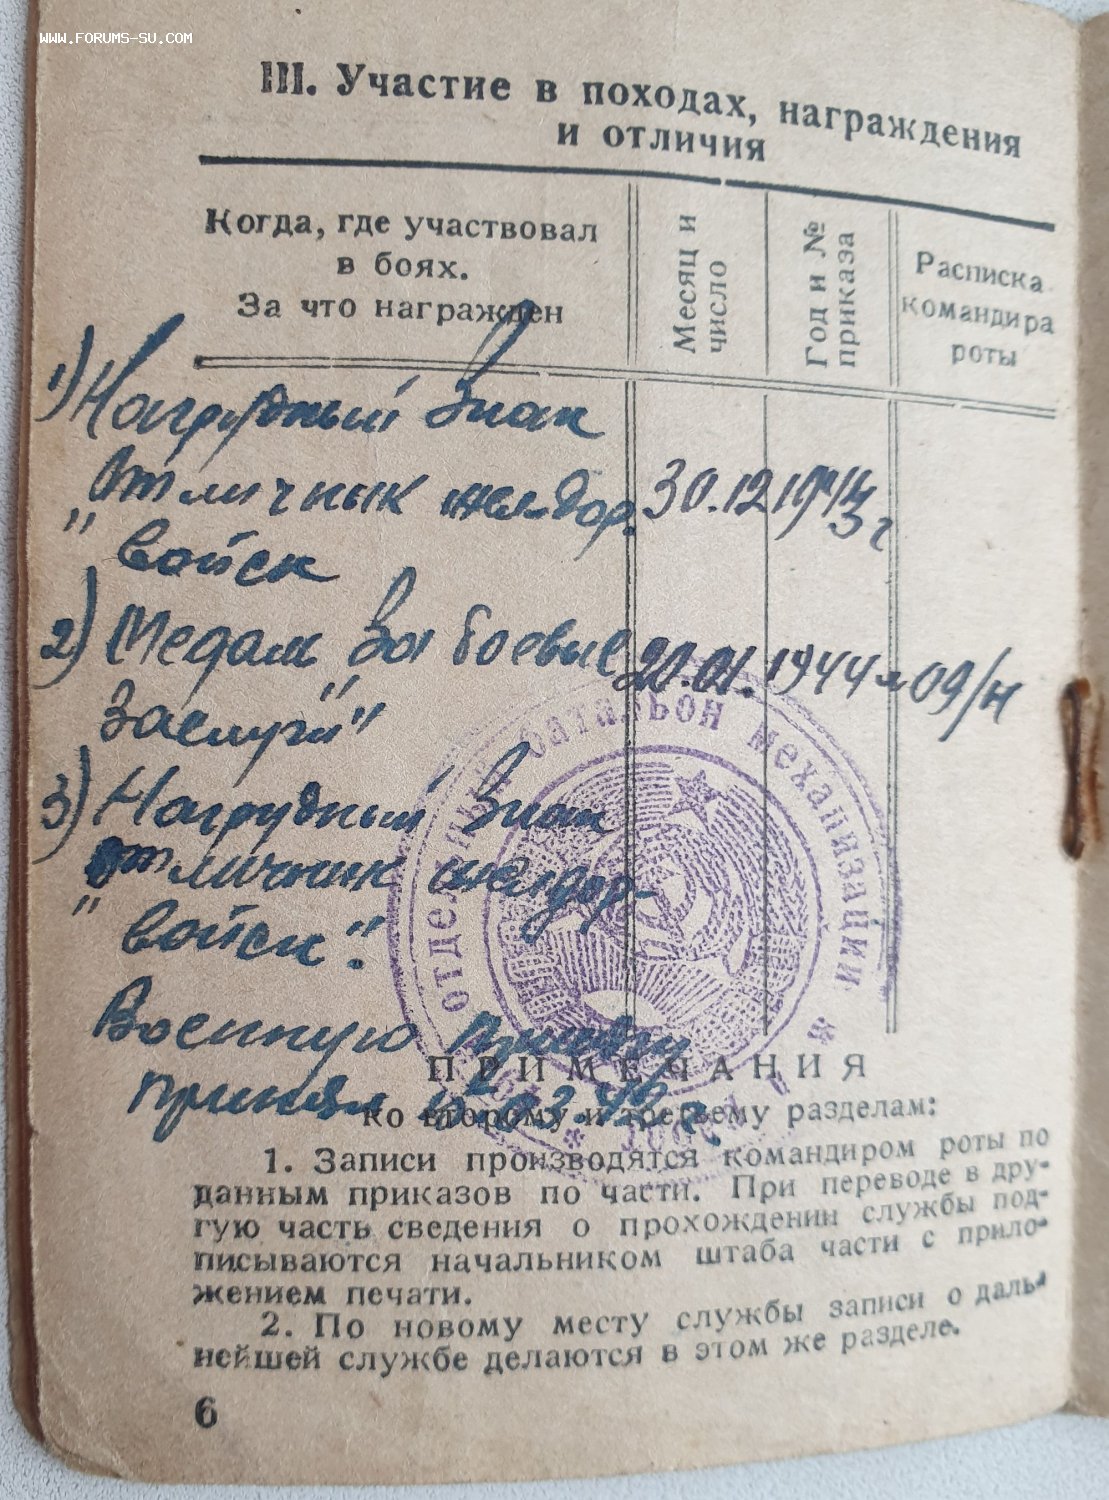 WWW.FORUMS-SU.COM
III. Участие в походах, награждения
и отличия
Когда, где участвовал
в боях.
За что награжден
Месяц и
число
Год и №
приказа
Расписка
командира
роты
1) Нагрудный Знак
"Отличнык желдор. 30.12 1943 г
войск
2) Медаль За боевые 20.01. 1944 09/н
Заслуги"
3) Нагрудный Знак
"отличник желдор-
войск".
Военную
принял
отдельный батальон механизации
ПРИМЕЧАНИЯ
ко второму и третьему разделам:
1. Записи производятся командиром роты по
данным приказов по части. При переводе в дру-
гую часть сведения о прохождении службы под-
писываются начальником штаба части с прило-
жением печати.
2. По новому месту службы записи о даль-
нейшей службе делаются в этом же разделе.
6